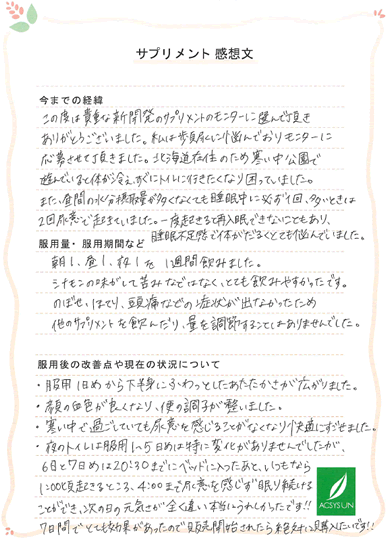 サプリメント 感想文
今までの経緯
この度は貴重な新開発のサプリメントのモニターに選んで頂き
ありがとうございました。私は頻尿に悩んでおりモニターに
応募させて頂きました。北海道在住のため寒い中公園で
遊んでいると体が冷え、すぐにトイレに行きたくなり困っていました。
また、昼間の水分摂取量が多くなくても睡眠中に必ず1回、多いときは
2回尿意で起きていました。一度起きると再入眠できないこともあり、
睡眠不足感で体がだるくとても悩んでいました。
服用量・服用期間など
朝1、昼1、夜1を1週間飲みました。
シナモンの味がして苦みなどはなく、とても飲みやすかったです。
のぼせ、ほてり、頭痛などの症状が出なかったため
他のサプリメントを飲んだり、量を調節することはありませんでした。
服用後の改善点や現在の状況について
・服用1日めから下半身にふわっとしたあたたかさが広がりました。
・顔の血色が良くなり、便の調子が整いました。
・寒い中で過ごしていても尿意を感じることがなくなり快適にすごせました。
・夜のトイレは服用1〜5日めは特に変化がありませんでしたが、
6日と7日めは20:30までにベッドに入ったあと、いつもなら
1:00頃起きるところ、4:00まで尿意を感じず眠り続ける
ことができ、次の日の元気さが全く違い本当にうれしかったです!!
7日間でとても効果があったので販売開始されたら絶対に購入したいです!!
ACSYSUN